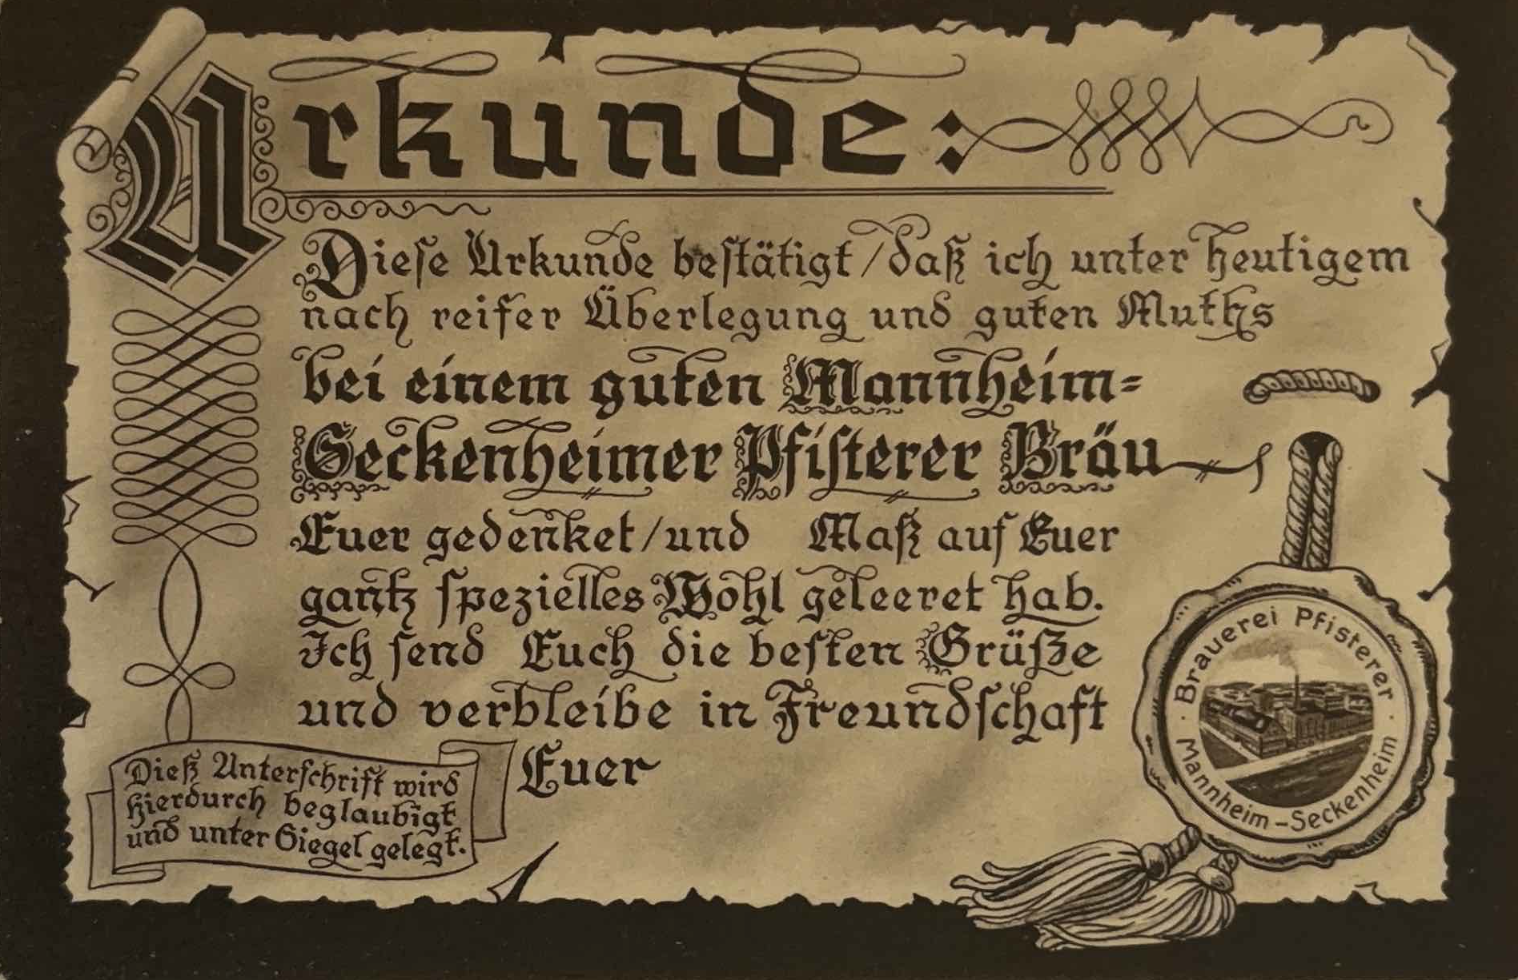 Urkunde:
Diese Urkunde bestätigt / daß ich unter heutigem
nach reifer Überlegung und guten Muths
bei einem guten Mannheim=
Seckenheimer Pfisterer Bräu
Euer gedenket / und Maß auf Euer
gantz spezielles Wohl geleeret hab.
Ich send Euch die besten Grüße
und verbleibe in Freundschaft
Euer
Dieß Unterschrift wird
hierdurch beglaubigt
und unter Siegel gelegt.
· Brauerei Pfisterer ·
Mannheim-Seckenheim